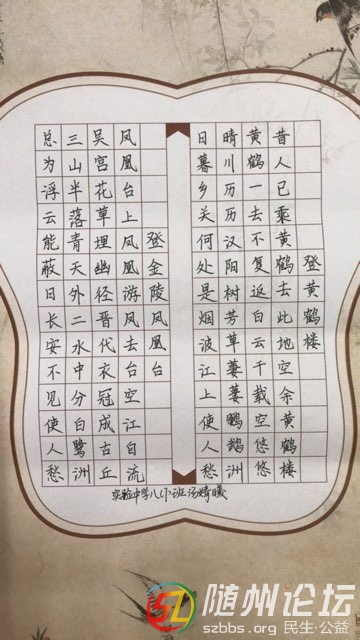 登黄鹤楼
昔人已乘黄鹤去此地空余黄鹤楼
黄鹤一去不复返白云千载空悠悠
晴川历历汉阳树芳草萋萋鹦鹉洲
日暮乡关何处是烟波江上使人愁
登金陵凤凰台
凤凰台上凤凰游凤去台空江自流
吴宫花草埋幽径晋代衣冠成古丘
三山半落青天外二水中分白鹭洲
总为浮云能蔽日长安不见使人愁
实验中学八
随州论坛
szbbs.org 民生·公益